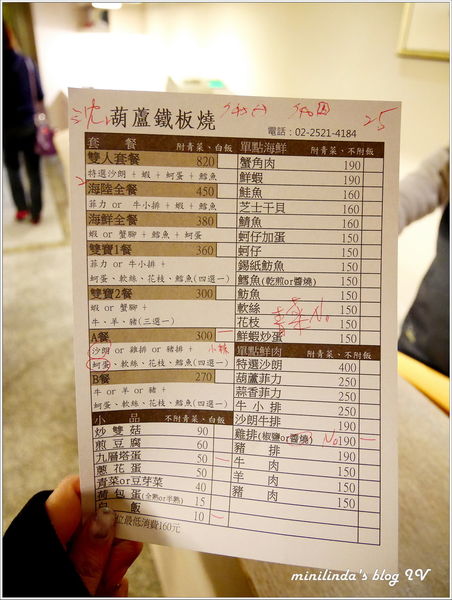 沈
葫蘆鐵板燒
電話：02-2521-4184
25
套餐 附青菜、白飯
雙人套餐 820
特選沙朗 + 蝦 + 蚵蛋 + 鱈魚
海陸全餐 450
菲力 or 牛小排 + 蝦 + 鱈魚
海鮮全餐 380
蝦 or 蟹腳 + 鱈魚 + 蚵蛋
雙寶1餐 360
菲力 or 牛小排 +
蚵蛋、軟絲、花枝、鱈魚(四選一)
雙寶2餐 300
蝦 or 蟹腳 +
牛、羊、豬(三選一)
A餐 300
沙朗 or 雞排 or 豬排 +
小辣
蚵蛋、軟絲、花枝、鱈魚(四選一)
B餐 270
牛 or 羊 or 豬 +
蚵蛋、軟絲、花枝、鱈魚(四選一)
小品 不附青菜、白飯
炒雙菇 90
煎豆腐 60
九層塔蛋 50
蔥花蛋 50
青菜or豆芽菜 40
荷包蛋(全熟or半熟) 15
白飯 10
位最低消費160元
單點海鮮 附青菜、不附飯
蟹角肉 190
鮮蝦 190
鮭魚 160
芝士干貝 160
鯖魚 160
蚵仔加蛋 150
蚵仔 150
錫紙魴魚 150
鱈魚(乾煎or醬燒) 150
魴魚 150
軟絲 150
花枝 150
菜No
鮮蝦炒蛋 150
單點鮮肉 附青菜、不附飯
特選沙朗 400
葫蘆菲力 250
蒜香菲力 250
牛小排 250
沙朗牛排 190
雞排(椒鹽or醬燒) No 190
豬排 190
牛肉 150
羊肉 150
豬肉 150
minilinda's blog QV